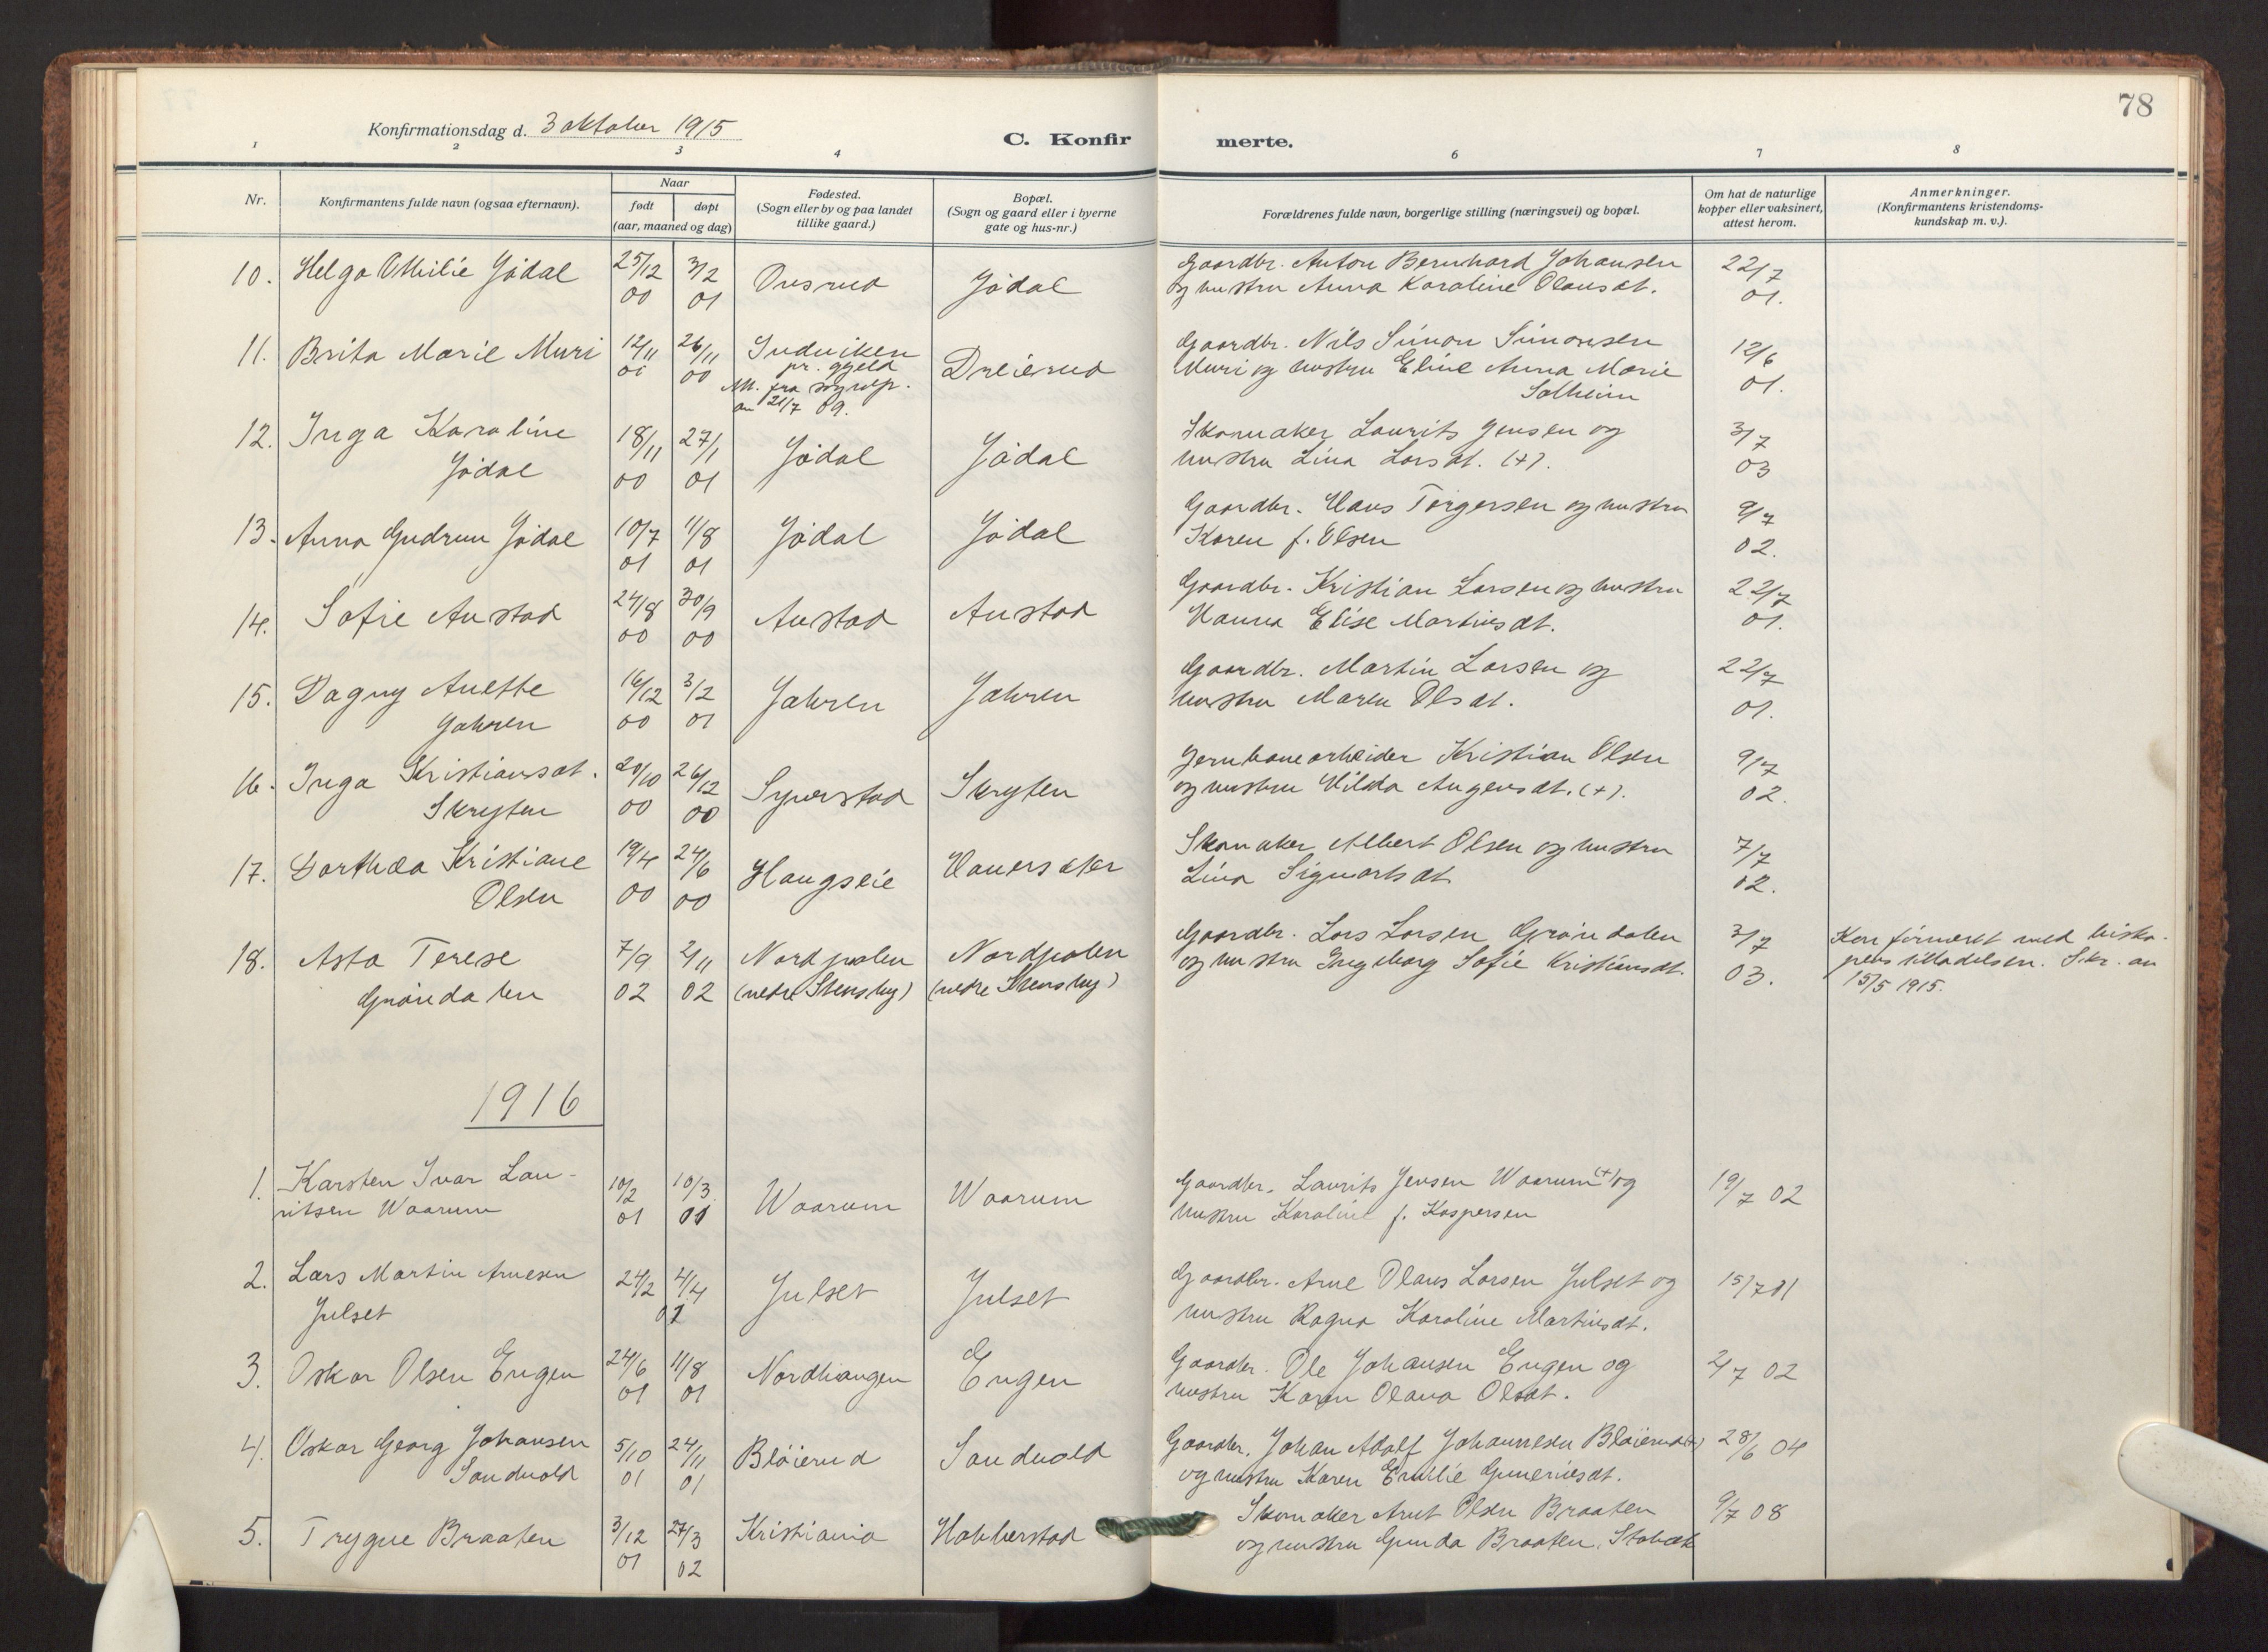 78
Konfirmationsdag d. 3 oktober 1915
C. Konfirmerte.
1 2 3 4 6 7 8
Nr.
Konfirmantens fulde navn (ogsaa efternavn).
Naar
født
døpt
(aar, maaned og dag)
Fødested.
(Sogn eller by og paa landet
tillike gaard.)
Bopæl.
(Sogn og gaard eller i byerne
gate og hus-nr.)
Forældrenes fulde navn, borgerlige stilling (næringsvei) og bopæl.
Om hat de naturlige
kopper eller vaksinert,
attest herom.
Anmerkninger.
(Konfirmantens kristendoms-
kundskap m. v.).
10. Helga Othilie Jødal 25/12 3/2 Onsrud Jødal Gaardbr. Anton Bernhard Johansen 22/7
00 01 og hustru Anna Karoline Olausdt. 01.
11. Brita Marie Muri 12/11 26/11 Indviken Dreierud Gaardbr. Nils Simon Simonsen 12/6
00 00 pr. gjeld Muri og hustru Eline Anna Marie 01.
av 21/7 09. Solheim
12. Inga Karoline 18/11 27/1 Jødal Jødal Skomaker Laurits Jensen og 3/7
Jødal 00 01 hustru Lina Larsdt. (+). 03
13. Anna Gudrun Jødal 10/7 11/8 Jødal Jødal Gaardbr. Hans Torgersen og hustru 9/7
01 01 Karen f. Olsen 02.
14. Sofie Austad 24/8 30/9 Austad Austad Gaardbr. Kristian Larsen og hustru 22/7
00 00 Hanna Elise Martinsdt. 01.
15. Dagny Anette 16/12 3/2 Jahren Jahren Gaardbr. Martin Larsen og 22/7
Jahren 00 01 hustru Maren Olsdt. 01.
16. Inga Kristiansdt. 20/10 26/12 Syverstad Skryten Jernbanearbeider Kristian Olsen 9/7
Skryten 00 00 og hustru Hilda Augensdt. (+). 02.
17. Dorthea Kristiane 19/4 24/6 Haugseie Hauersæter Skomaker Albert Olsen og hustru 7/7
Olsen 00 00 Lina Sigvartsdt. 02.
18. Asta Terese 7/9 2/11 Nordpolen Nordpolen Gaardbr. Lars Larsen Grøndalen 3/7 Konfirmert med bisko-
Grøndalen 02 02 (nedre Stensby) (nedre Stensby) og hustru Ingeborg Sofie Kristiansdt. 03. pens tilladelsen. Skr. av
15/5 1915.
1916
1. Karsten Ivar Lau- 10/2 10/3 Waarum Waarum Gaardbr. Laurits Jensen Waarum (+) og 19/7 02
ritsen Waarum 01 01 hustru Karoline f. Kaspersen
2. Lars Martin Arnesen 24/2 4/4 Julset Julset Gaardbr. Arne Olaus Larsen Julset og 15/7 01
Julset 01 hustru Ragna Karoline Martinsdt.
3. Oskar Olsen Engen 24/6 11/8 Nordhaugen Engen Gaardbr. Ole Johansen Engen og 2/7 02
01 01 hustru Karen Olava Olsdt.
4. Oskar Georg Johansen 5/10 24/11 Bløierud Sandvold Gaardbr. Johan Adolf Johannesen Bløierud (+) 28/6 04
Sandvold 01 01 og hustru Karen Emilie Gunneriusdt.
5. Trygve Braaten 3/12 27/3 Kristiania Habberstad Skomaker Arnt Olsen Braaten 9/7 08
01 02 og hustru Gunda Braaten, Stabæk